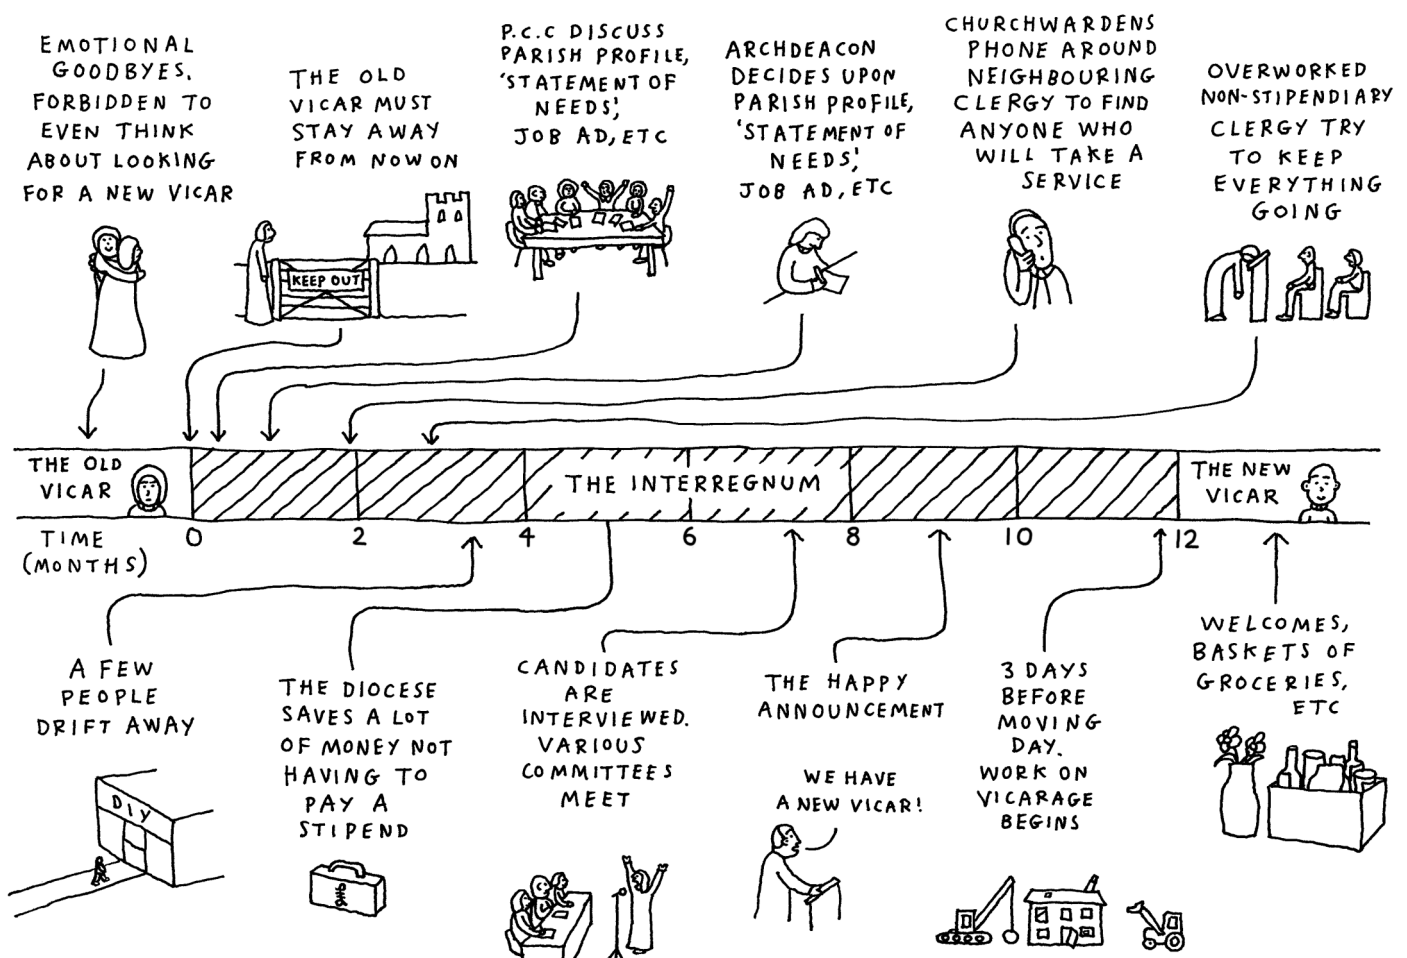 EMOTIONAL
GOODBYES.
FORBIDDEN TO
EVEN THINK
ABOUT LOOKING
FOR A NEW VICAR
THE OLD
VICAR MUST
STAY AWAY
FROM NOW ON
KEEP OUT
P.C.C DISCUSS
PARISH PROFILE,
'STATEMENT OF
NEEDS',
JOB AD, ETC
ARCHDEACON
DECIDES UPON
PARISH PROFILE,
'STATEMENT OF
NEEDS',
JOB AD, ETC
CHURCHWARDENS
PHONE AROUND
NEIGHBOURING
CLERGY TO FIND
ANYONE WHO
WILL TAKE A
SERVICE
OVERWORKED
NON-STIPENDIARY
CLERGY TRY
TO KEEP
EVERYTHING
GOING
THE OLD
VICAR
THE INTERREGNUM
THE NEW
VICAR
TIME
(MONTHS)
0 2 4 6 8 10 12
A FEW
PEOPLE
DRIFT AWAY
DIY
THE DIOCESE
SAVES A LOT
OF MONEY NOT
HAVING TO
PAY A
STIPEND
CANDIDATES
ARE
INTERVIEWED.
VARIOUS
COMMITTEES
MEET
THE HAPPY
ANNOUNCEMENT
WE HAVE
A NEW VICAR!
3 DAYS
BEFORE
MOVING
DAY.
WORK ON
VICARAGE
BEGINS
WELCOMES,
BASKETS OF
GROCERIES,
ETC